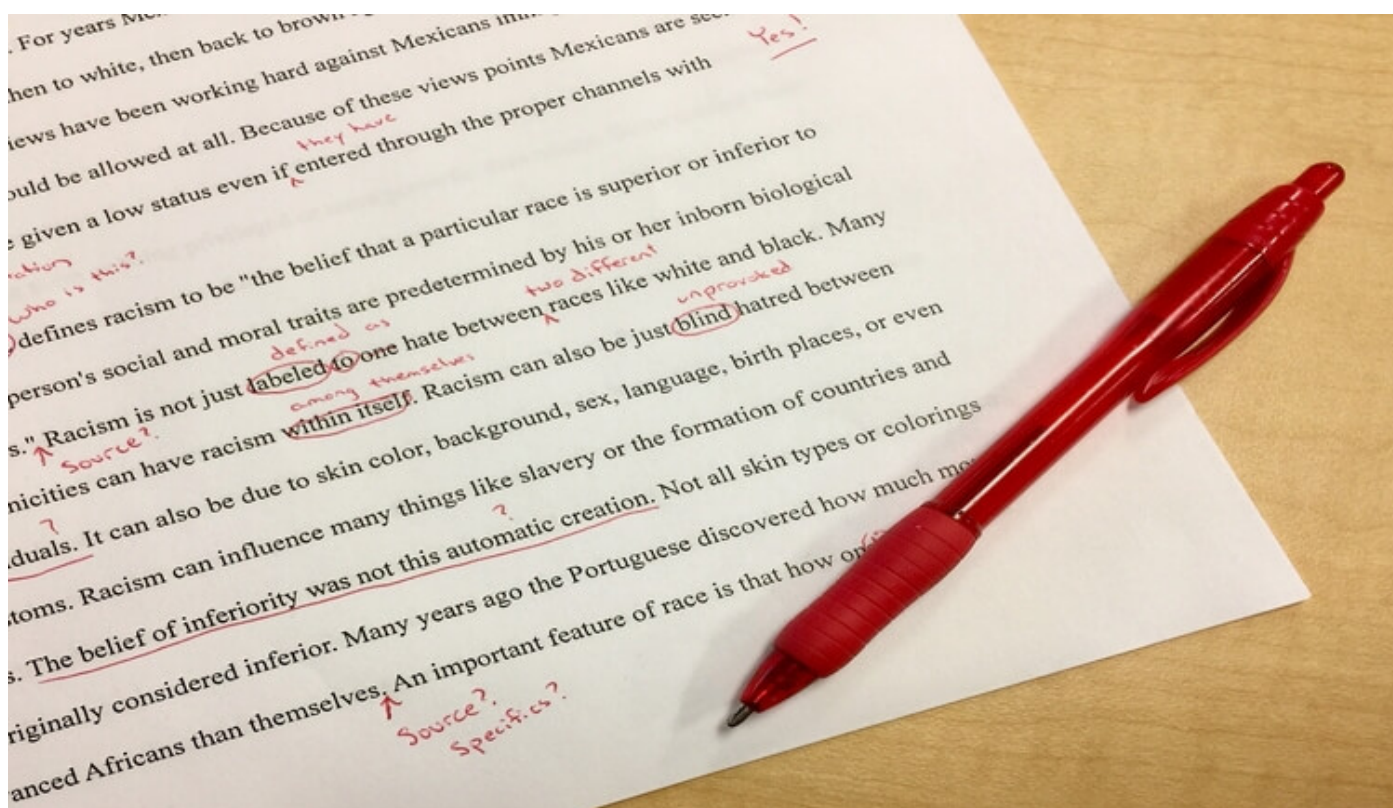 . For years
then to white, then back to brown
Yes!
iews have been working hard against Mexicans
ould be allowed at all. Because of these views points Mexicans are
they have
e given a low status even if ^ entered through the proper channels with
Who is this?
defines racism to be "the belief that a particular race is superior or inferior to
person's social and moral traits are predetermined by his or her inborn biological
defined as
two different
s." Racism is not just labeled to one hate between ^ races like white and black. Many
Source?
among themselves
unprovoked
nicities can have racism within itself. Racism can also be just blind hatred between
?
duals. It can also be due to skin color, background, sex, language, birth places, or even
toms. Racism can influence many things like slavery or the formation of countries and
?
s. The belief of inferiority was not this automatic creation. Not all skin types or colorings
riginally considered inferior. Many years ago the Portuguese discovered how much
anced Africans than themselves. An important feature of race is that how
Source?
Specifics?